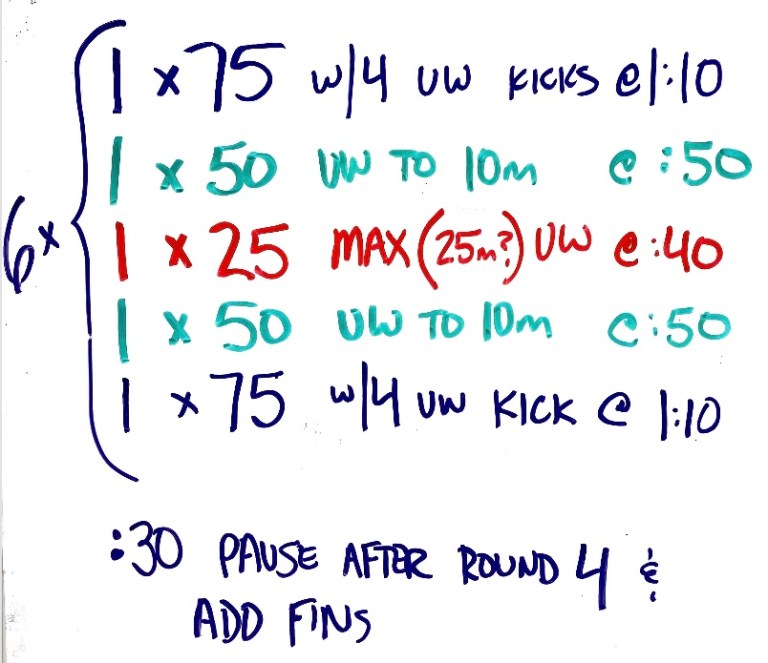 1 x 75 w/4 UW KICKS @ 1:10
1 x 50 UW TO 10m @ :50
6x
1 x 25 MAX (25m?) UW @ :40
1 x 50 UW TO 10m @ :50
1 x 75 w/4 UW KICK @ 1:10
:30 PAUSE AFTER ROUND 4 &
ADD FINS